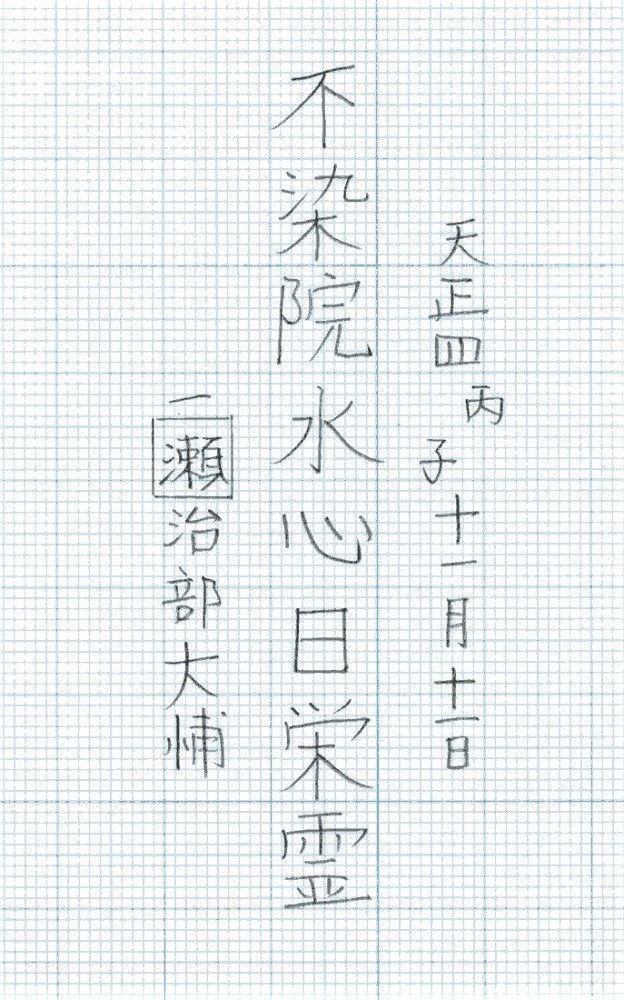 天正四丙子十一月十一日
不染院水心日栄霊
一瀬治部大悑